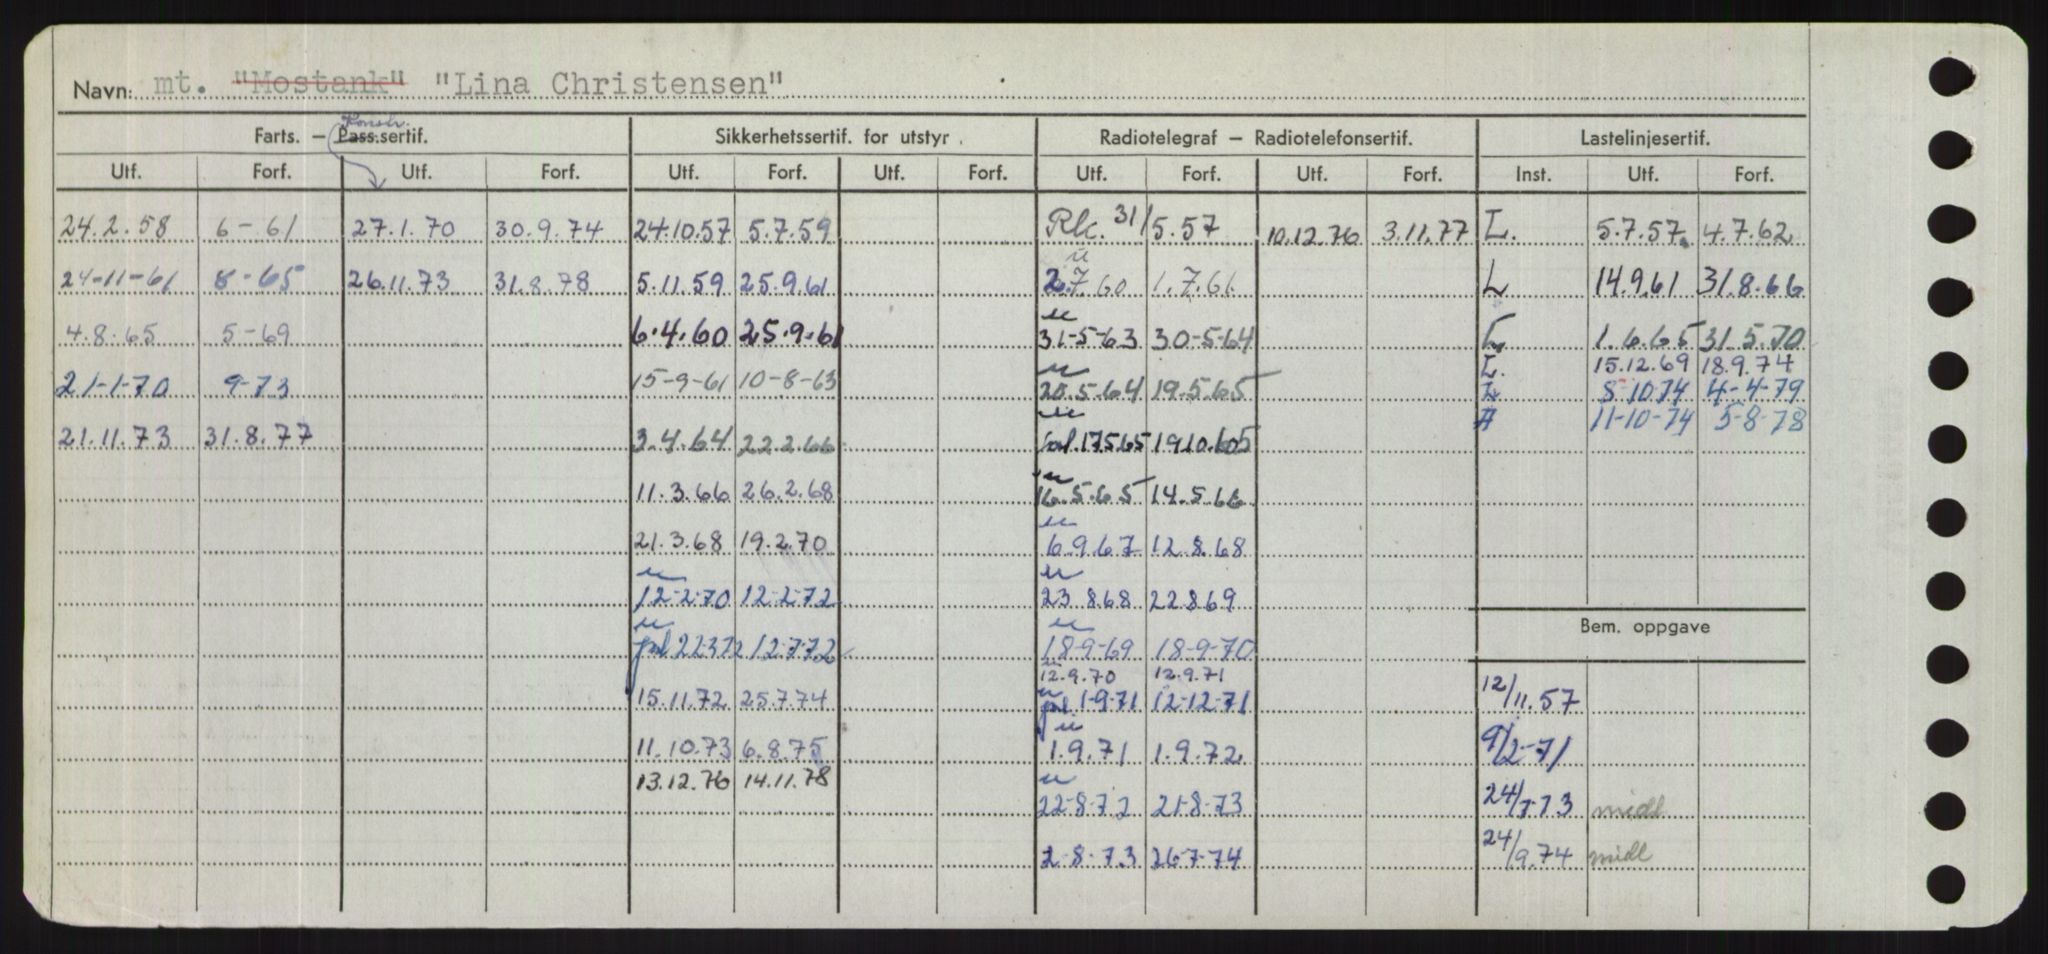 Navn: mt. "Mostank" "Lina Christensen"
Konstr.
Farts. — Pass.sertif. Sikkerhetssertif. for utstyr. Radiotelegraf — Radiotelefonsertif. Lastelinjesertif.
Utf. Forf. Utf. Forf. Utf. Forf. Utf. Forf. Utf. Forf. Utf. Forf. Inst. Utf. Forf.
24.2.58 6-61 27.1.70 30.9.74 24.10.57 5.7.59 Rlc. 31/5.57 10.12.76 3.11.77 L. 5.7.57 4.7.62
u
24-11-61 8-65 26.11.73 31.8.78 5.11.59 25.9.61 2.7.60 1.7.61 L 14.9.61 31.8.66
u
4.8.65 5-69 6.4.60 25.9.61 31-5-63 30-5-64 L 1.6.65 31.5.70
L. 15.12.69 18.9.74
u
21-1-70 9-73 15-9-61 10-8-63 20.5.64 19.5.65 L 8-10.74 4-4-79
A 11-10-74 5-8-78
u
21.11.73 31.8.77 3.4.64 22.2.66 17.5.65 19.10.65
u
11.3.66 26.2.68 16.5.65 14.5.66
u
21.3.68 19.2.70 6.9.67 12.8.68
u u
12-2-70 12-2-72 23.8.68 22.8.69
u u
Bem. oppgave
22-3-72 12-7-72 18-9-69 18-9-70
u
12.9.70 12.9.71
u
15.11.72 25.7.74 1-9-71 12-12-71 12/11.57
u
11.10.73 6.8.75 1.9.71 1.9.72 9/2-71
13.12.76 14.11.78
u
22-8-72 21-8-73 24/7-73 midl
2-8-73 26-7-74 24/9.74 midl